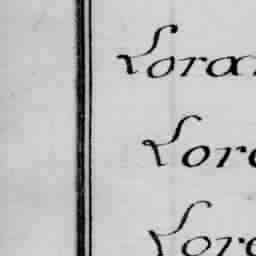 Lora
Lor
Lor